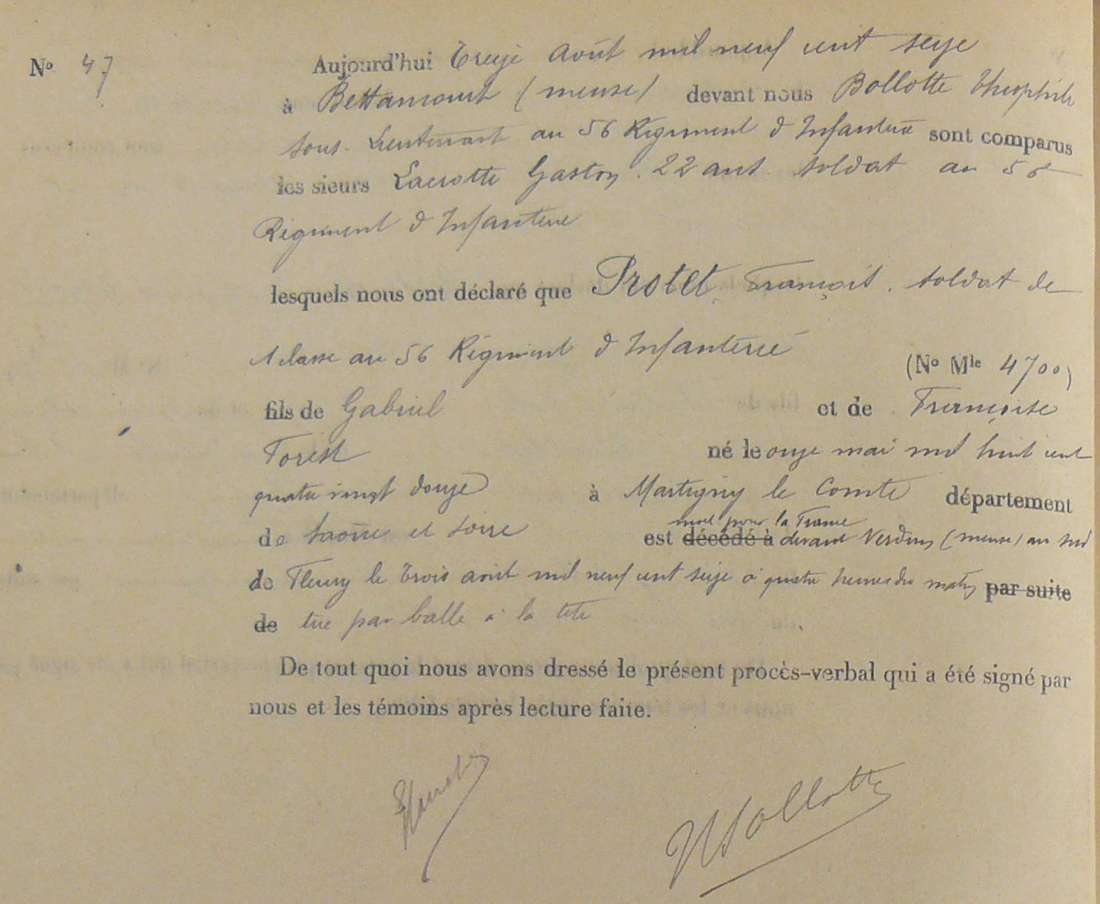 No 47
Aujourd'hui Treize août mil neuf cent seize
à Bettancourt (meuse) devant nous Bollotte Théophile
sous-Lieutenant au 56 Régiment d'Infanterie sont comparus
les sieurs Lacrotte Gaston. 22 ans. soldat au 56
Régiment d'Infanterie
lesquels nous ont déclaré que Protet François. soldat de
1 classe au 56 Régiment d'Infanterie
(No Mle 4700)
fils de Gabriel et de Françoise
Forest né le onze mai mil huit cent
quatre vingt douze à Martigny le Comte département
de Saône et Loire est décédé à mort pour la France devant Verdun (meuse) au sud
de Fleury le Trois août mil neuf cent seize à quatre heures du matin par suite
de tué par balle à la tête
De tout quoi nous avons dressé le présent procès-verbal qui a été signé par
nous et les témoins après lecture faite.
Bollotte